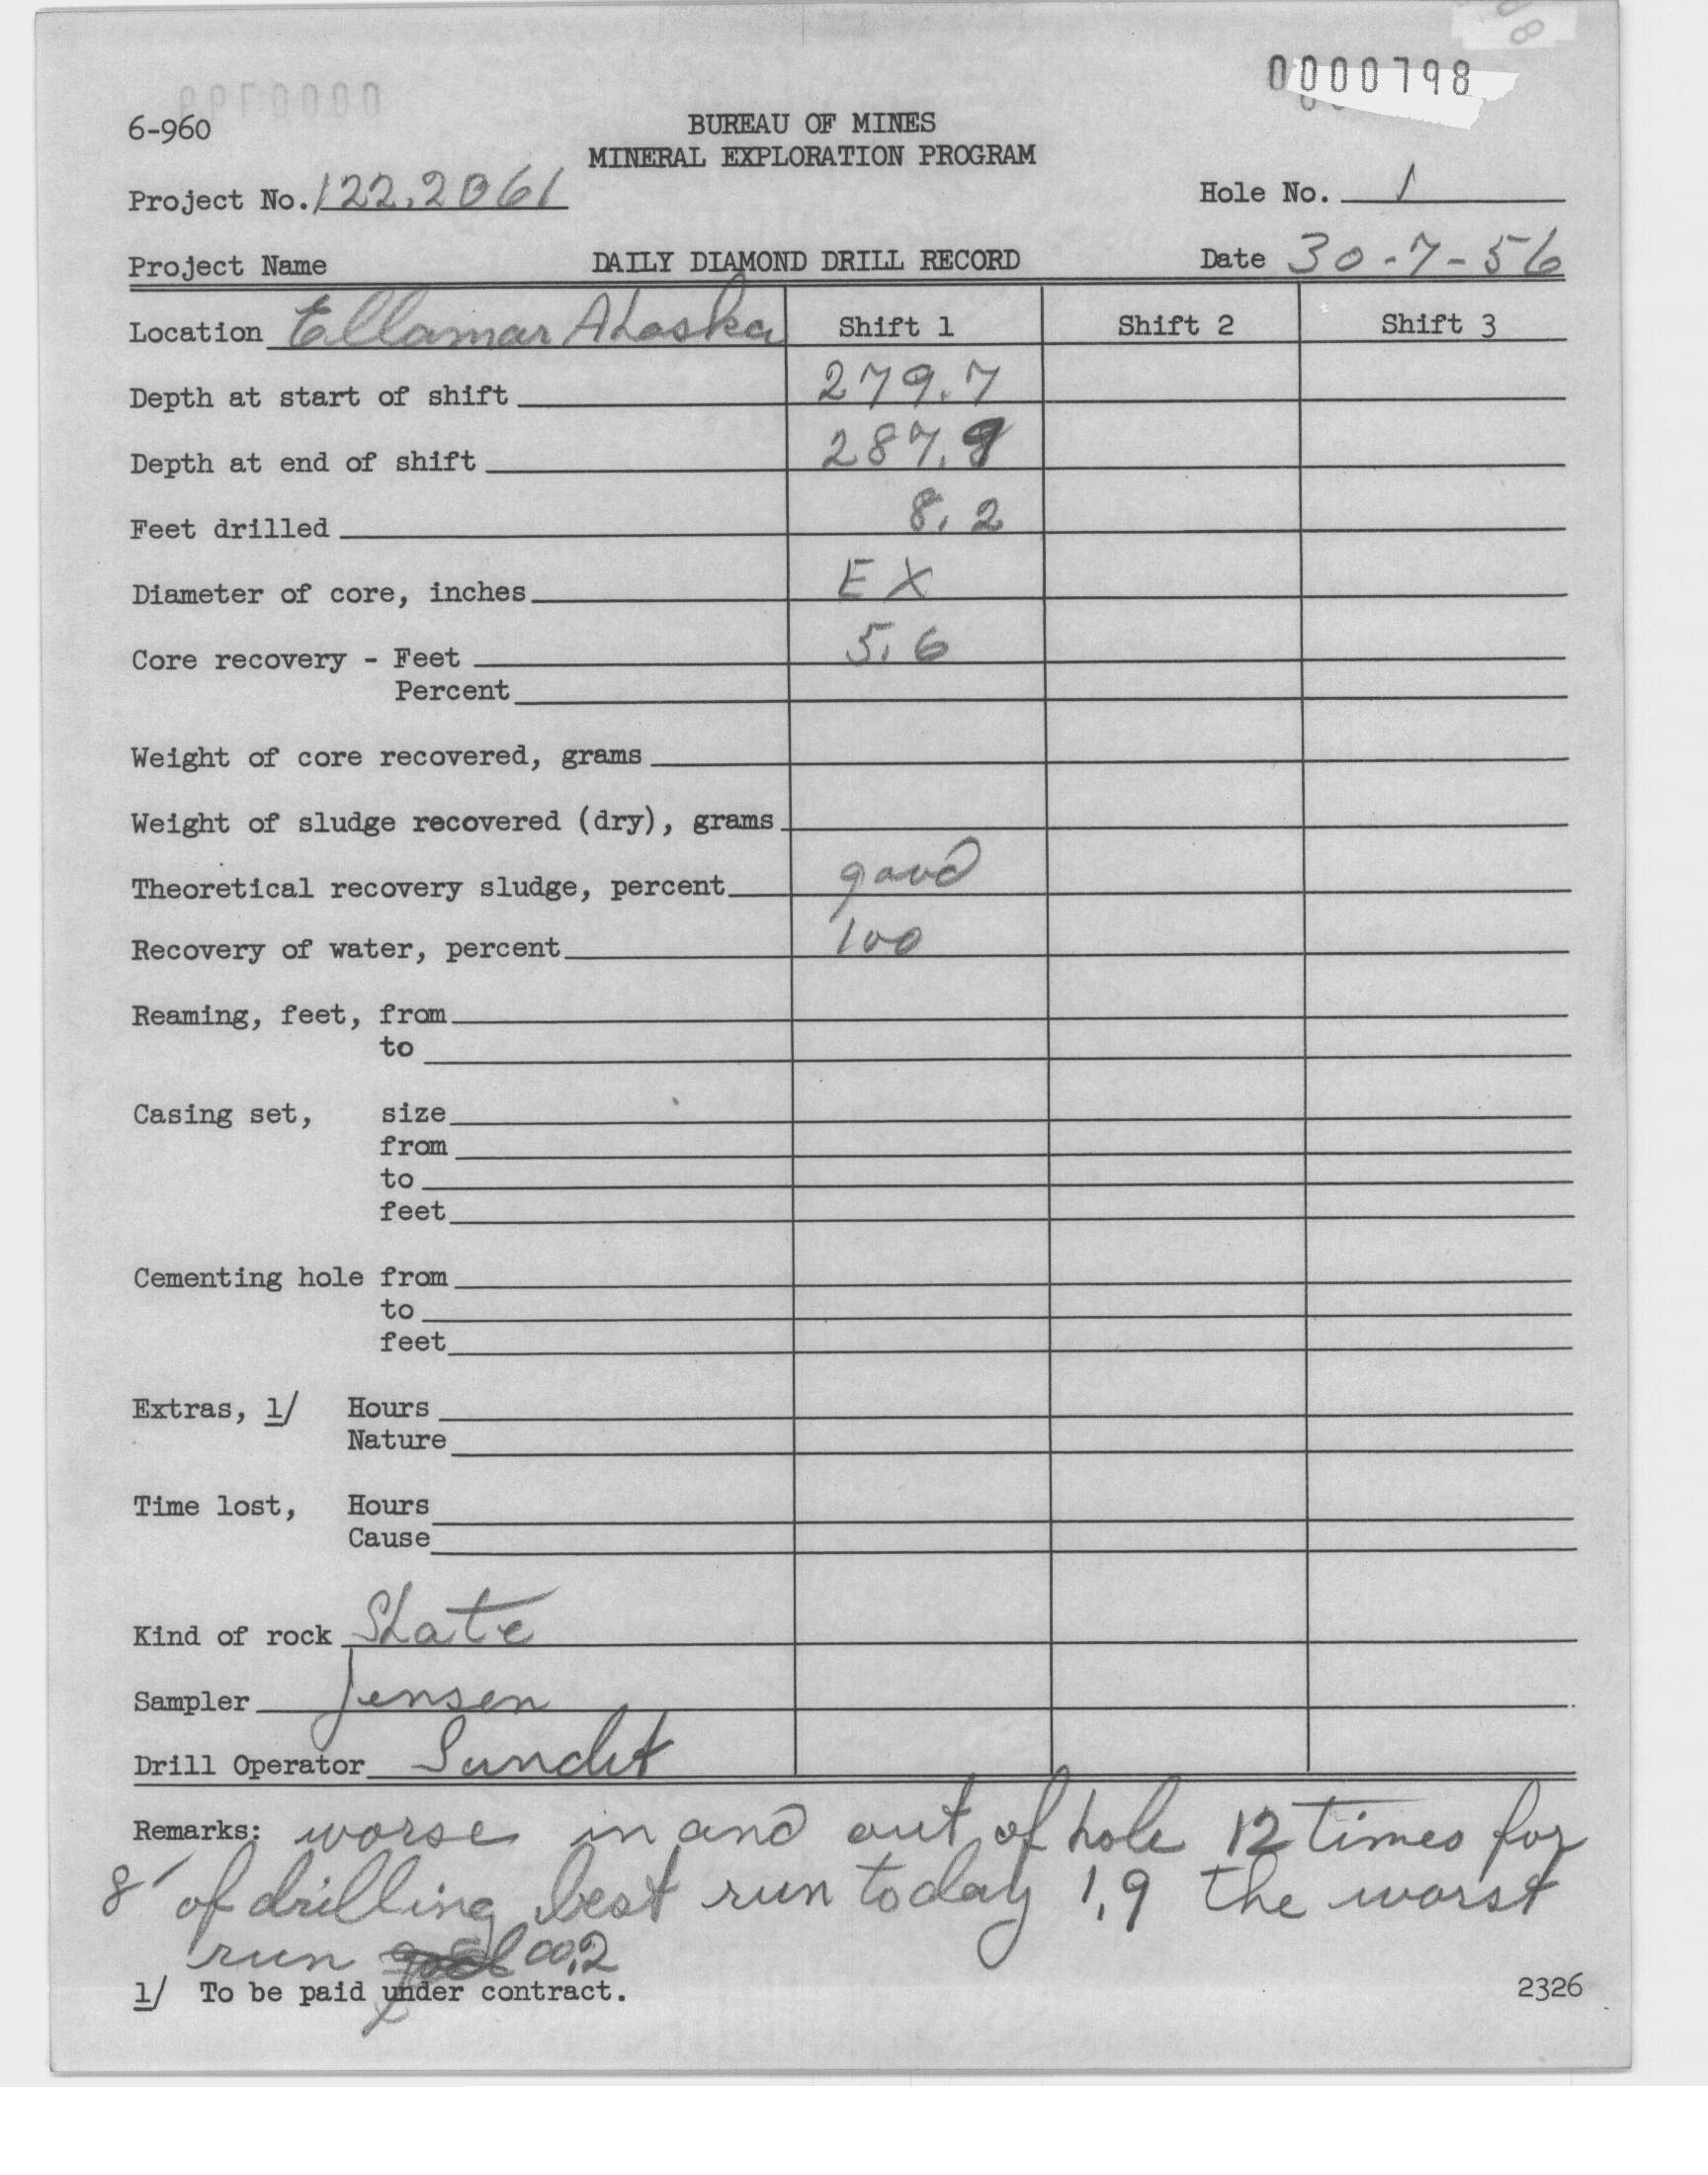 0000798
6-960
BUREAU OF MINES
MINERAL EXPLORATION PROGRAM
Project No. 122.2061
Hole No. 1
Project Name
DAILY DIAMOND DRILL RECORD
Date 30-7-56
Location Ellamar Alaska Shift 1 Shift 2 Shift 3
Depth at start of shift 279.7
Depth at end of shift 287.9
Feet drilled 8.2
Diameter of core, inches EX
Core recovery - Feet 5.6
Percent
Weight of core recovered, grams
Weight of sludge recovered (dry), grams
Theoretical recovery sludge, percent good
Recovery of water, percent 100
Reaming, feet, from
to
Casing set, size
from
to
feet
Cementing hole from
to
feet
Extras, 1/ Hours
Nature
Time lost, Hours
Cause
Kind of rock Slate
Sampler Jensen
Drill Operator
Remarks: worse in and out of hole 12 times for
8' of drilling best run today 1.9 the worst
run 00.2
1/ To be paid under contract.
2326